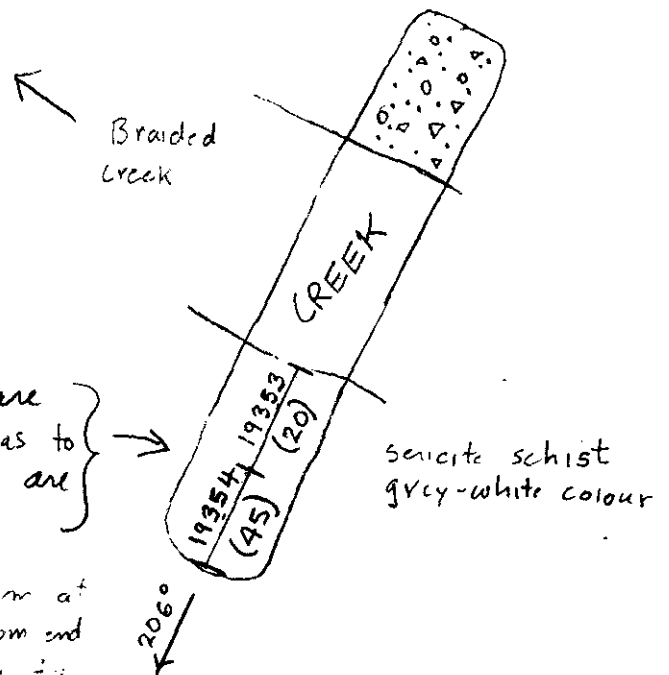 Braided
creek
CREEK
are
as to
are
19353
(20)
19354
(45)
sericite schist
grey-white colour
at
end
206°